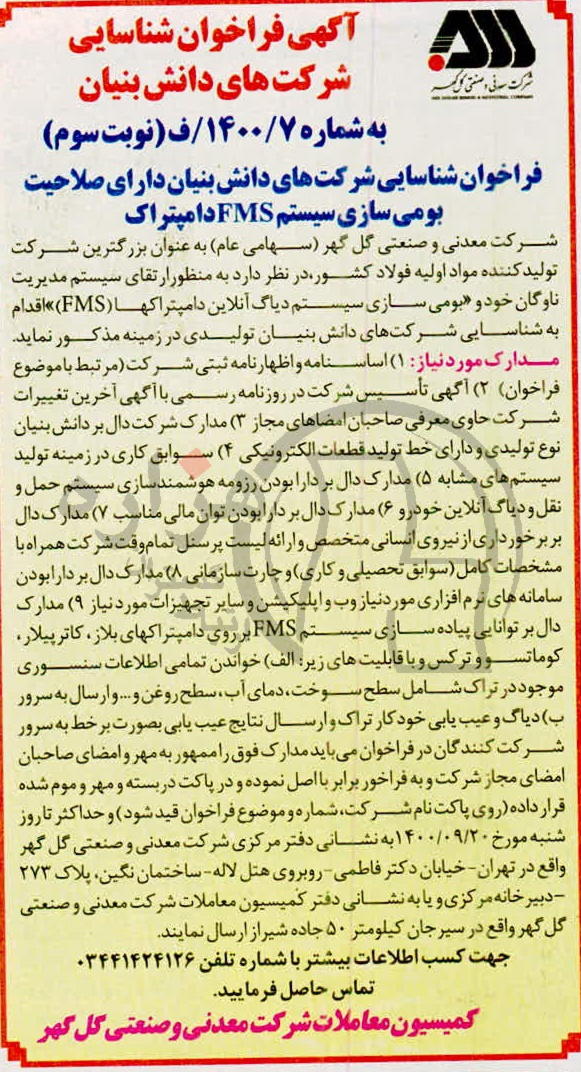 شرکت معدنی و صنعتی گل گهر
آگهی فراخوان شناسایی
شرکت های دانش بنیان
به شماره ۱۴۰۰/۷/ف (نوبت سوم)
فراخوان شناسایی شرکت های دانش بنیان دارای صلاحیت
بومی سازی سیستم FMS دامپتراک
شرکت معدنی و صنعتی گل گهر (سهامی عام) به عنوان بزرگترین شرکت
تولیدکننده مواد اولیه فولاد کشور، در نظر دارد به منظور ارتقای سیستم مدیریت
ناوگان خود و «بومی سازی سیستم دیاگ آنلاین دامپتراکها (FMS)» اقدام
به شناسایی شرکت های دانش بنیان تولیدی در زمینه مذکور نماید.
مدارک مورد نیاز: ۱) اساسنامه و اظهارنامه ثبتی شرکت (مرتبط با موضوع
فراخوان) ۲) آگهی تأسیس شرکت در روزنامه رسمی با آگهی آخرین تغییرات
شرکت حاوی معرفی صاحبان امضاهای مجاز ۳) مدارک شرکت دال بر دانش بنیان
نوع تولیدی و دارای خط تولید قطعات الکترونیکی ۴) سوابق کاری در زمینه تولید
سیستم های مشابه ۵) مدارک دال بر دارا بودن رزومه هوشمندسازی سیستم حمل و
نقل و دیاگ آنلاین خودرو ۶) مدارک دال بر دارا بودن توان مالی مناسب ۷) مدارک دال
بر برخورداری از نیروی انسانی متخصص و ارائه لیست پرسنل تمام وقت شرکت همراه با
مشخصات کامل (سوابق تحصیلی و کاری) و چارت سازمانی ۸) مدارک دال بر دارا بودن
سامانه های نرم افزاری مورد نیاز وب و اپلیکیشن و سایر تجهیزات مورد نیاز ۹) مدارک
دال بر توانایی پیاده سازی سیستم FMS بر روی دامپتراکهای بلاز، کاترپیلار،
کوماتسو و ترکس و با قابلیت های زیر: الف) خواندن تمامی اطلاعات سنسوری
موجود در تراک شامل سطح سوخت، دمای آب، سطح روغن و... و ارسال به سرور
ب) دیاگ و عیب یابی خودکار تراک و ارسال نتایج عیب یابی بصورت برخط به سرور
شرکت کنندگان در فراخوان می باید مدارک فوق را ممهور به مهر و امضای صاحبان
امضای مجاز شرکت و به فراخور برابر با اصل نموده و در پاکت دربسته و مهر و موم شده
قرار داده (روی پاکت نام شرکت، شماره و موضوع فراخوان قید شود) و حداکثر تا روز
شنبه مورخ ۱۴۰۰/۰۹/۲۰ به نشانی دفتر مرکزی شرکت معدنی و صنعتی گل گهر
واقع در تهران- خیابان دکتر فاطمی- روبروی هتل لاله- ساختمان نگین، پلاک ۲۷۳
-دبیرخانه مرکزی و یا به نشانی دفتر کمیسیون معاملات شرکت معدنی و صنعتی
گل گهر واقع در سیرجان کیلومتر ۵۰ جاده شیراز ارسال نمایند.
جهت کسب اطلاعات بیشتر با شماره تلفن ۰۳۴۴۱۴۲۴۱۲۶
تماس حاصل فرمایید.
کمیسیون معاملات شرکت معدنی و صنعتی گل گهر